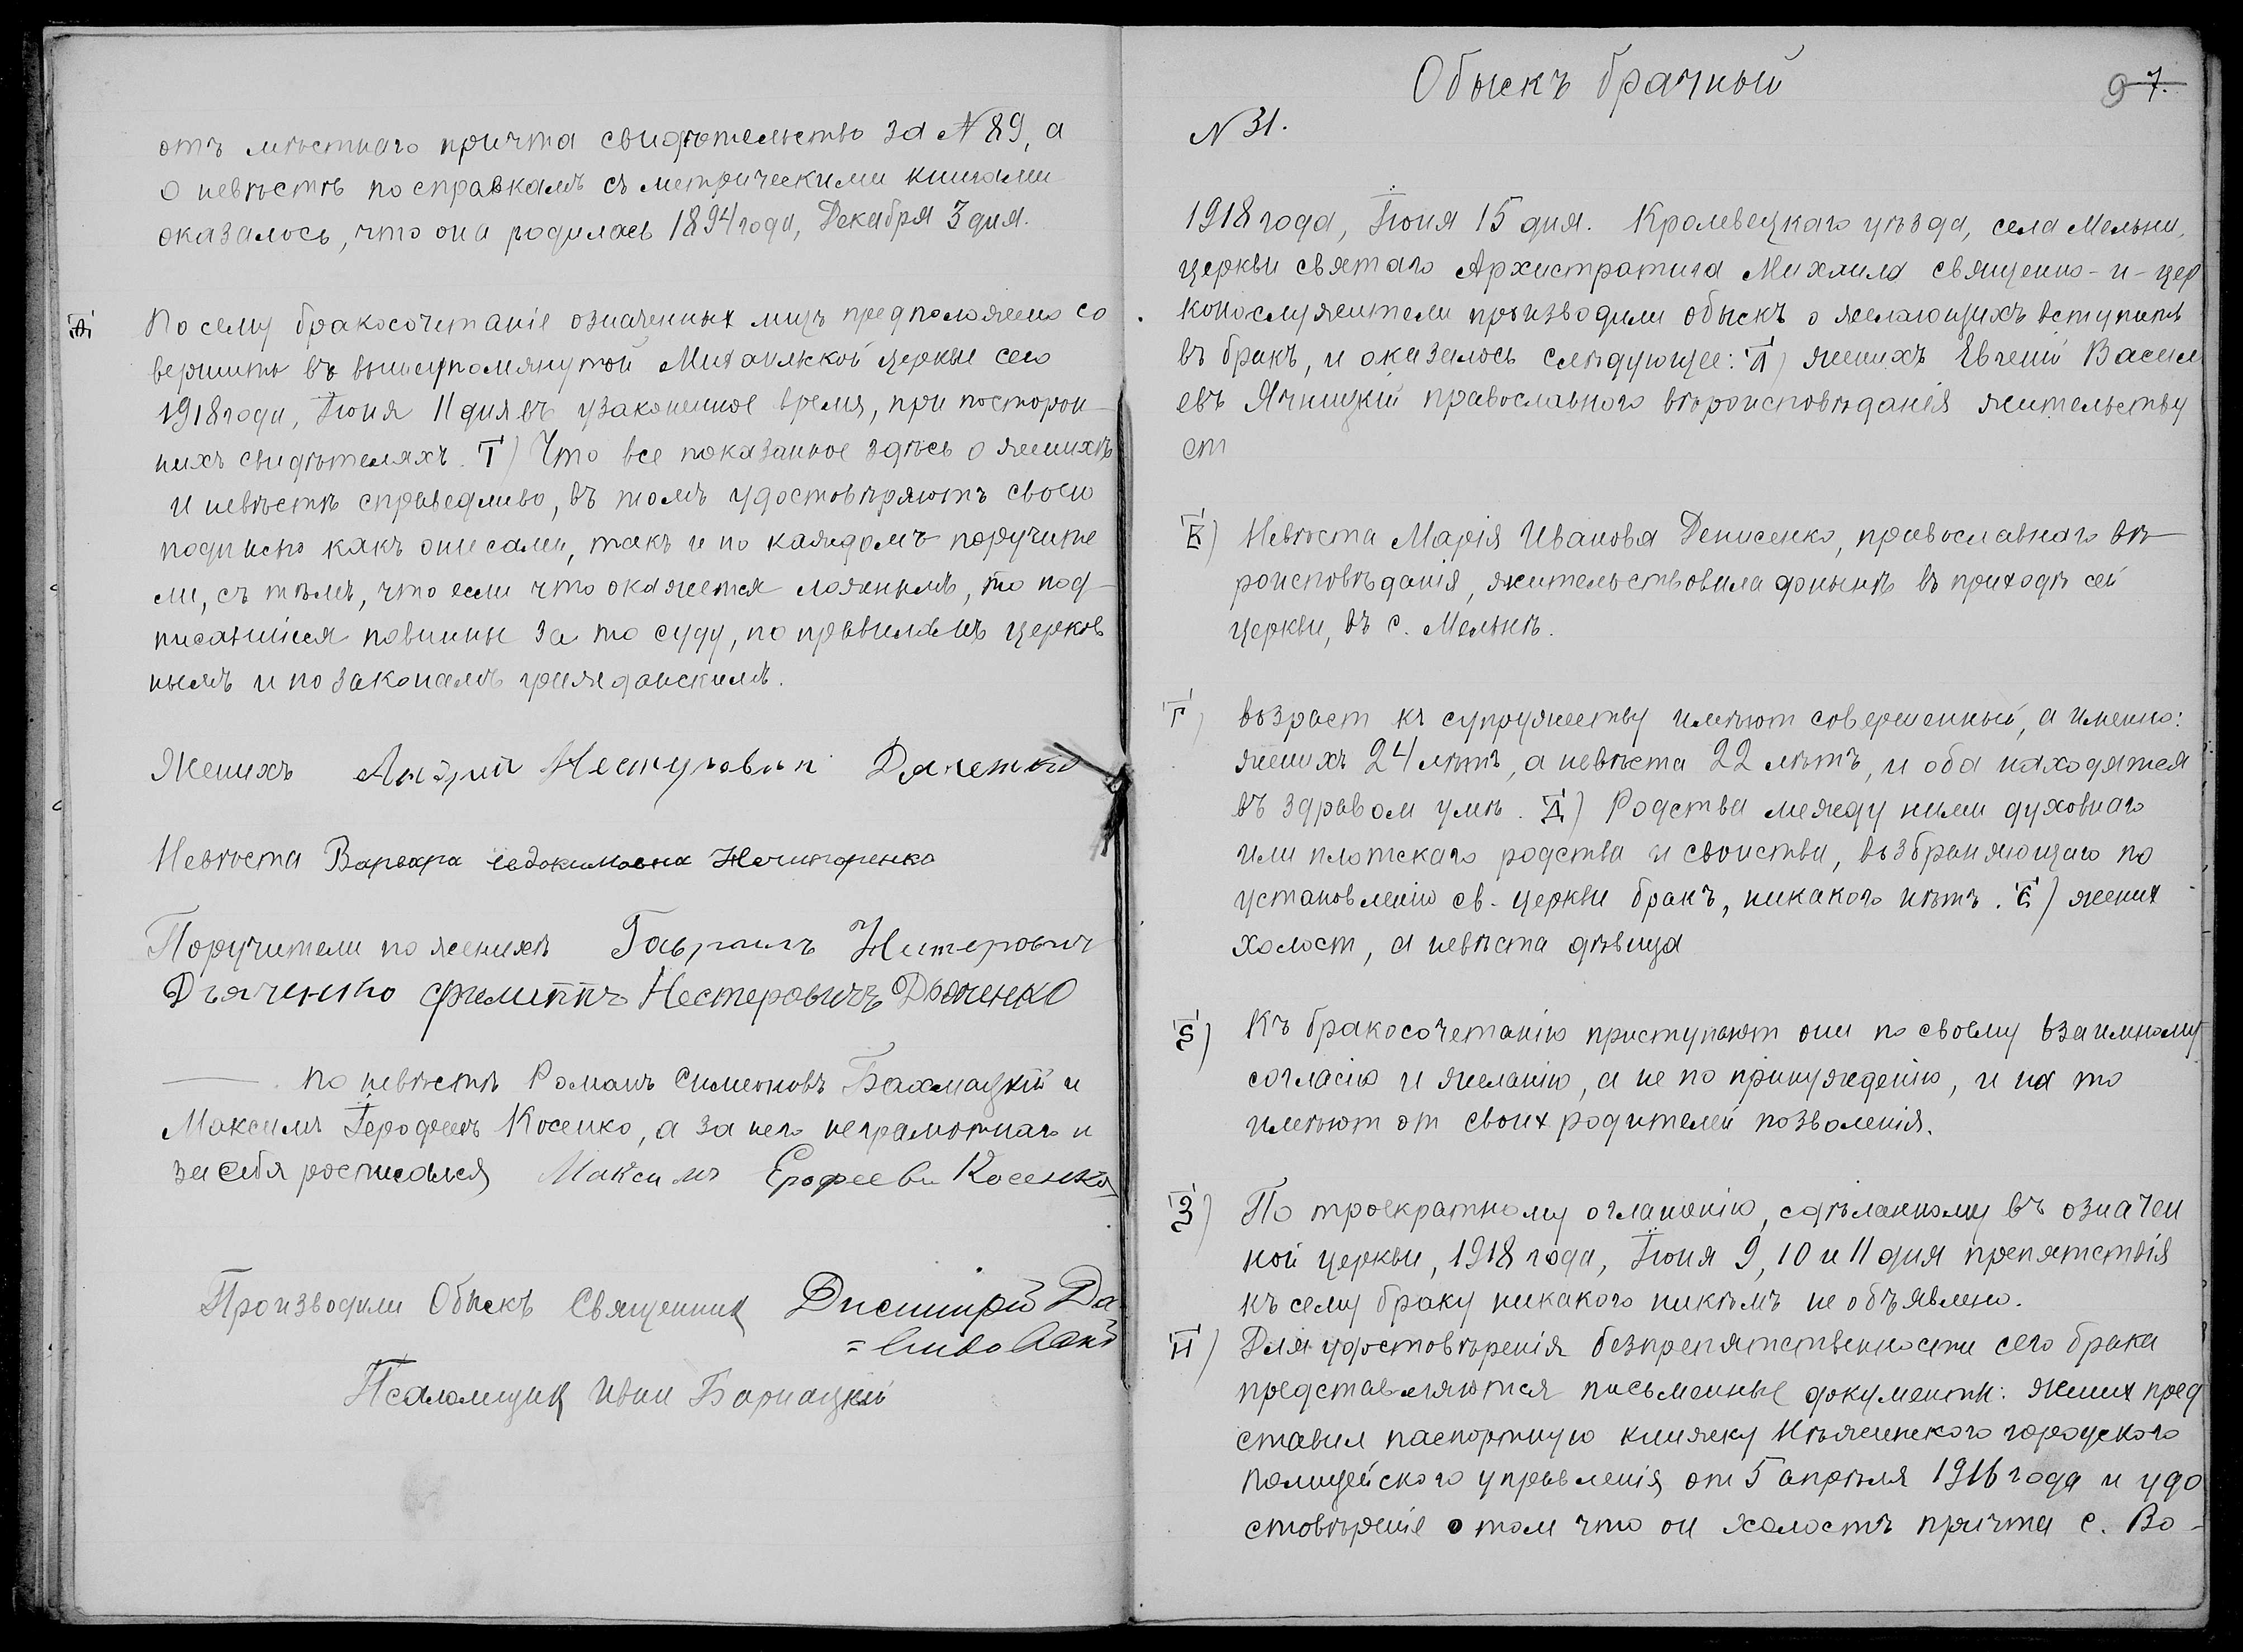 отъ мѣстнаго причта свидѣтельство за №89, а
о невѣстѣ по справкамъ съ метрическими книгами
оказалось, что она родилась 1894 года, Декабря 3 дня.
Ѳ) Посему бракосочетаніе означенных лицъ предположено со
вершить въ вышеупомянутой Михаильской церкви сего
1918 года, Іюня 11 дня въ узаконенное время, при посторон-
нихъ свидѣтеляхъ. І) Что все показанное здѣсь о женихѣ
и невѣстѣ справедливо, въ томъ удостовѣряютъ своею
подписью какъ они сами, такъ и по каждомъ поручите
ли, съ тѣмъ, что если что окажется ложнымъ, то под-
писавшіеся повинны за то суду, по правиламъ церков
нымъ и по законамъ гражданскимъ.
Женихъ Андрий
Невѣста Варвара Евдокимовна Нечипоренко
Поручители по женихѣ Гавриилъ
Дьяченко Филиппъ Нестеровичъ Дьяченко
— по невѣстѣ Романъ Симеоновъ Бахмацкій и
Максимъ Іерофеевъ Косенко, а за него неграмотнаго и
за себя росписался Максимъ Ерофеевъ Косенко
Производили Обыскъ Священник Димитрій Да
Псаломщик Иван
Обыскъ брачный
9 7.
N 31.
1918 года, Іюня 15 дня. Кролевецкаго уѣзда, села Мельни,
церкви святаго Архистратига Михаила священно-и-цер
ковнослужители производили обыскъ о желающихъ вступить
въ бракъ, и оказалось слѣдующее: А) женихъ Евгений Васил
евъ Ячницкій православного вѣроисповѣданія жительству
ет
В) Невѣста Марія Иванова Денисенко, православнаго вѣ-
роисповѣданія, жительствовала донынѣ въ приходѣ сей
церкви, въ с. Мельнѣ.
Г) возраст къ супружеству имѣют совершенный, а именно:
женихъ 24 лѣтъ, а невѣста 22 лѣтъ, и оба находятся
въ здравом умѣ. Д) Родства между ними духовнаго
или плотскаго родства и свойства, възбраняющаго по
установленію св. церкви бракъ, никакого нѣтъ. Є) жених
холост, а невѣста дѣвица
Ѕ) Къ бракосочетанію приступают они по своему взаимному
согласію и желанію, а не по принужденію, и на то
имѣют от своих родителей позволенія.
З) По троекратному оглашенію, сдѣланному въ означен
ной церкви, 1918 года, Іюня 9, 10 и 11 дня препятствія
къ сему браку никакого никѣмъ не объявлено.
И) Для удостовѣренія безпрепятственности сего брака
представляются письменные документы: жених пред
ставил паспортную книжку Нѣжинского городского
полицейского управленія от 5 апрѣля 1916 года и удо
стовѣреніе о том что он холостъ причта с. Во-